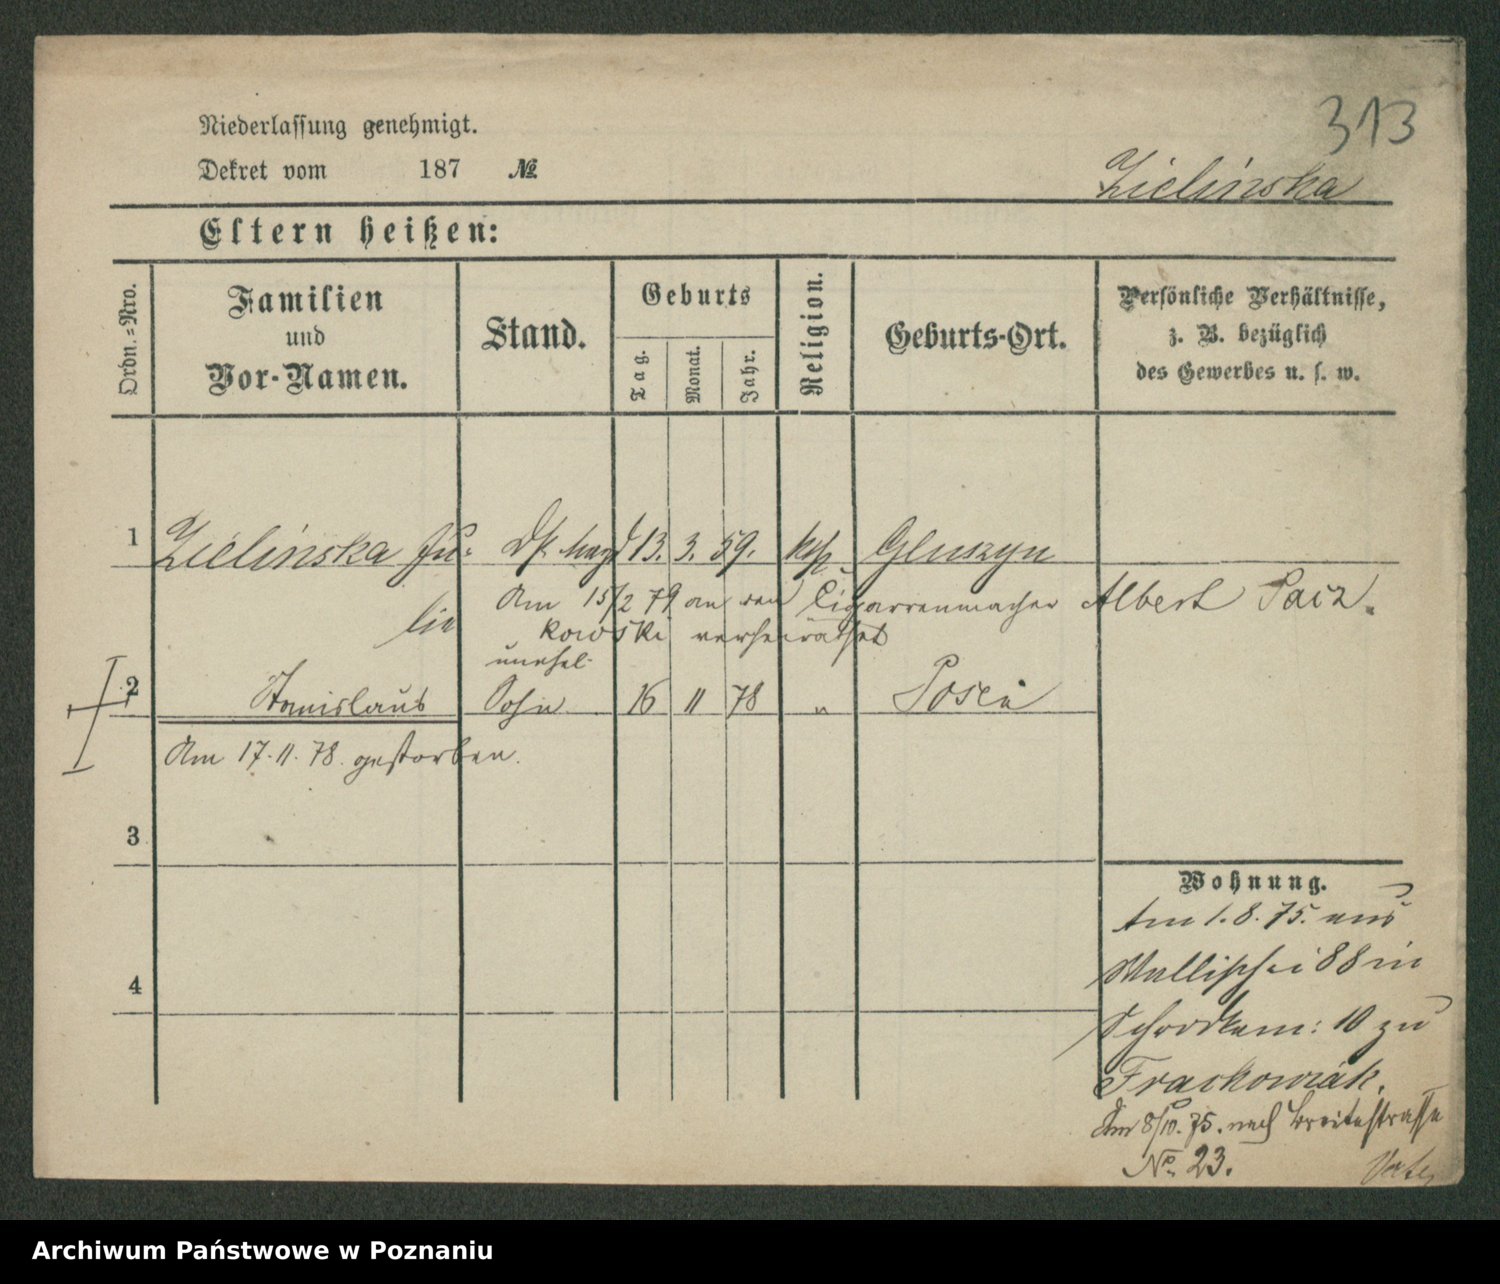 313
Niederlassung genehmigt.
Dekret vom 187 №
Zielinska
Eltern heißen:
Ordn.=Nro.
Familien
und
Vor-Namen.
Stand.
Geburts
Tag.
Monat.
Jahr.
Religion.
Geburts-Ort.
Persönliche Verhältnisse,
z. B. bezüglich
des Gewerbes u. s. w.
1 Zielinska Ju- 13. 3. 59. kth Gluszyn
lie
Am 15/2 79 an den Cigarrenmacher Albert Pacz-
kowski verheirathet
unehel-
2 Stanislaus Sohn 16 11 78 " Posen
Am 17. 11. 78. gestorben.
3
4
Wohnung.
Am 1. 8. 75. aus
Wallischei 88 in
10 zu
Frackowiak.
Am 8/10. 75. nach Breitestrasse
No. 23.
Archiwum Państwowe w Poznaniu